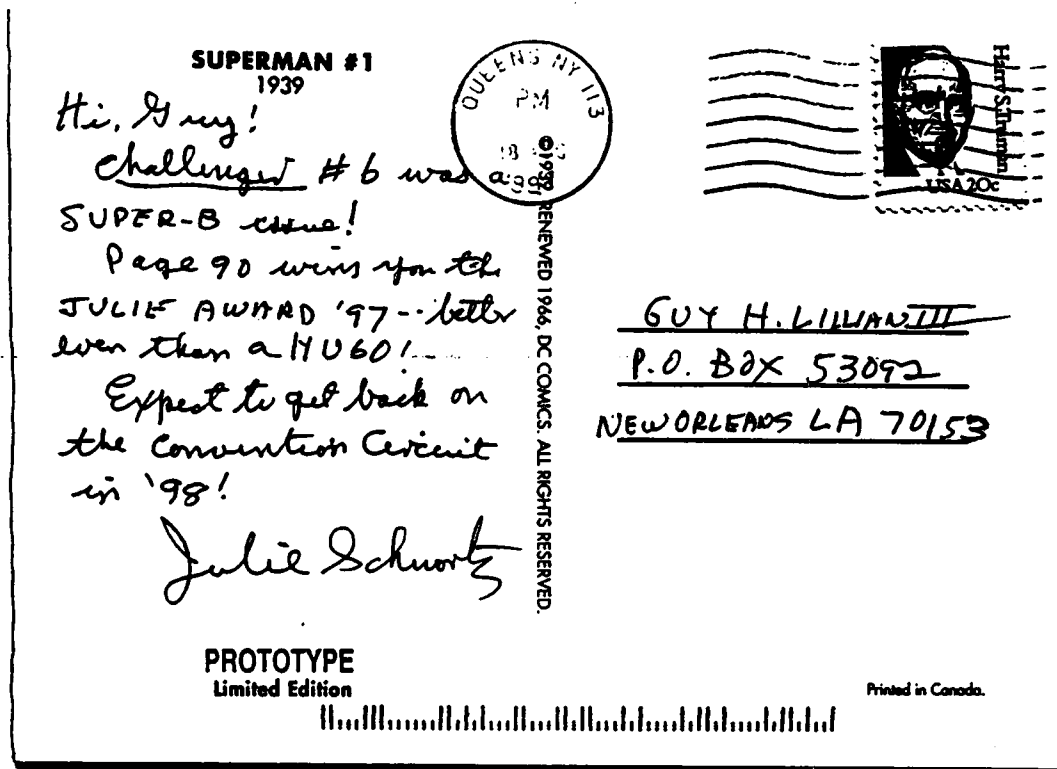 SUPERMAN #1
1939
Hi, Guy!
Challenger #6 was a
SUPER-B issue!
Page 90 wins you the
JULIE AWARD '97 -- better
even than a HUGO!
Expect to get back on
the Convention Circuit
in '98!
Julie Schwartz
PROTOTYPE
Limited Edition
QUEENS NY 113
PM
18
©1939, RENEWED 1966, DC COMICS. ALL RIGHTS RESERVED.
Harry S. Truman
USA 20c
GUY H. LILLIAN III
P.O. BOX 53092
NEW ORLEANS LA 70153
Printed in Canada.